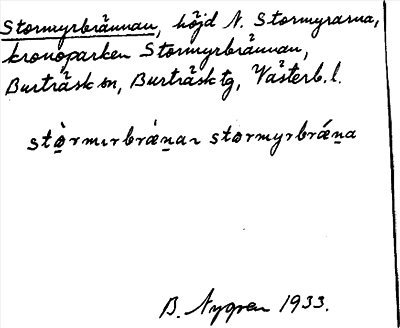 Stormyrbrännan, höjd N. Stormyrarna,
kronoparken Stormyrbrännan,
Burträsk sn, Burträsk tg, Västerb. l.
stò̱rmιrbrǽṉa ~ stormyrbrǽṉa
B. Nygren 1933.